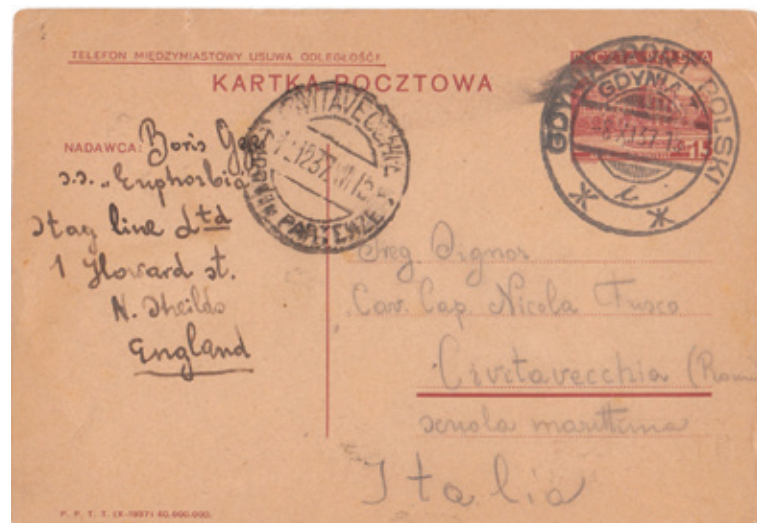 TELEFON MIĘDZYMIASTOWY USUWA ODLEGŁOŚĆ!
POCZTA POLSKA
KARTKA POCZTOWA
15
GDYNIA PORT POLSKI
GDYNIA 1
CIVITAVECCHIA
PARTENZE
NADAWCA: Boris
s.s. "Euphorbia
Stag line Ltd
1 Howard st.
N. Sheilds
England
Egreg. Signor
Cav. Cap. Nicola Fusco
Civitavecchia (Roma
scuola marittima
Italia
P. P. T. T. (X-1937) 40.000.000.